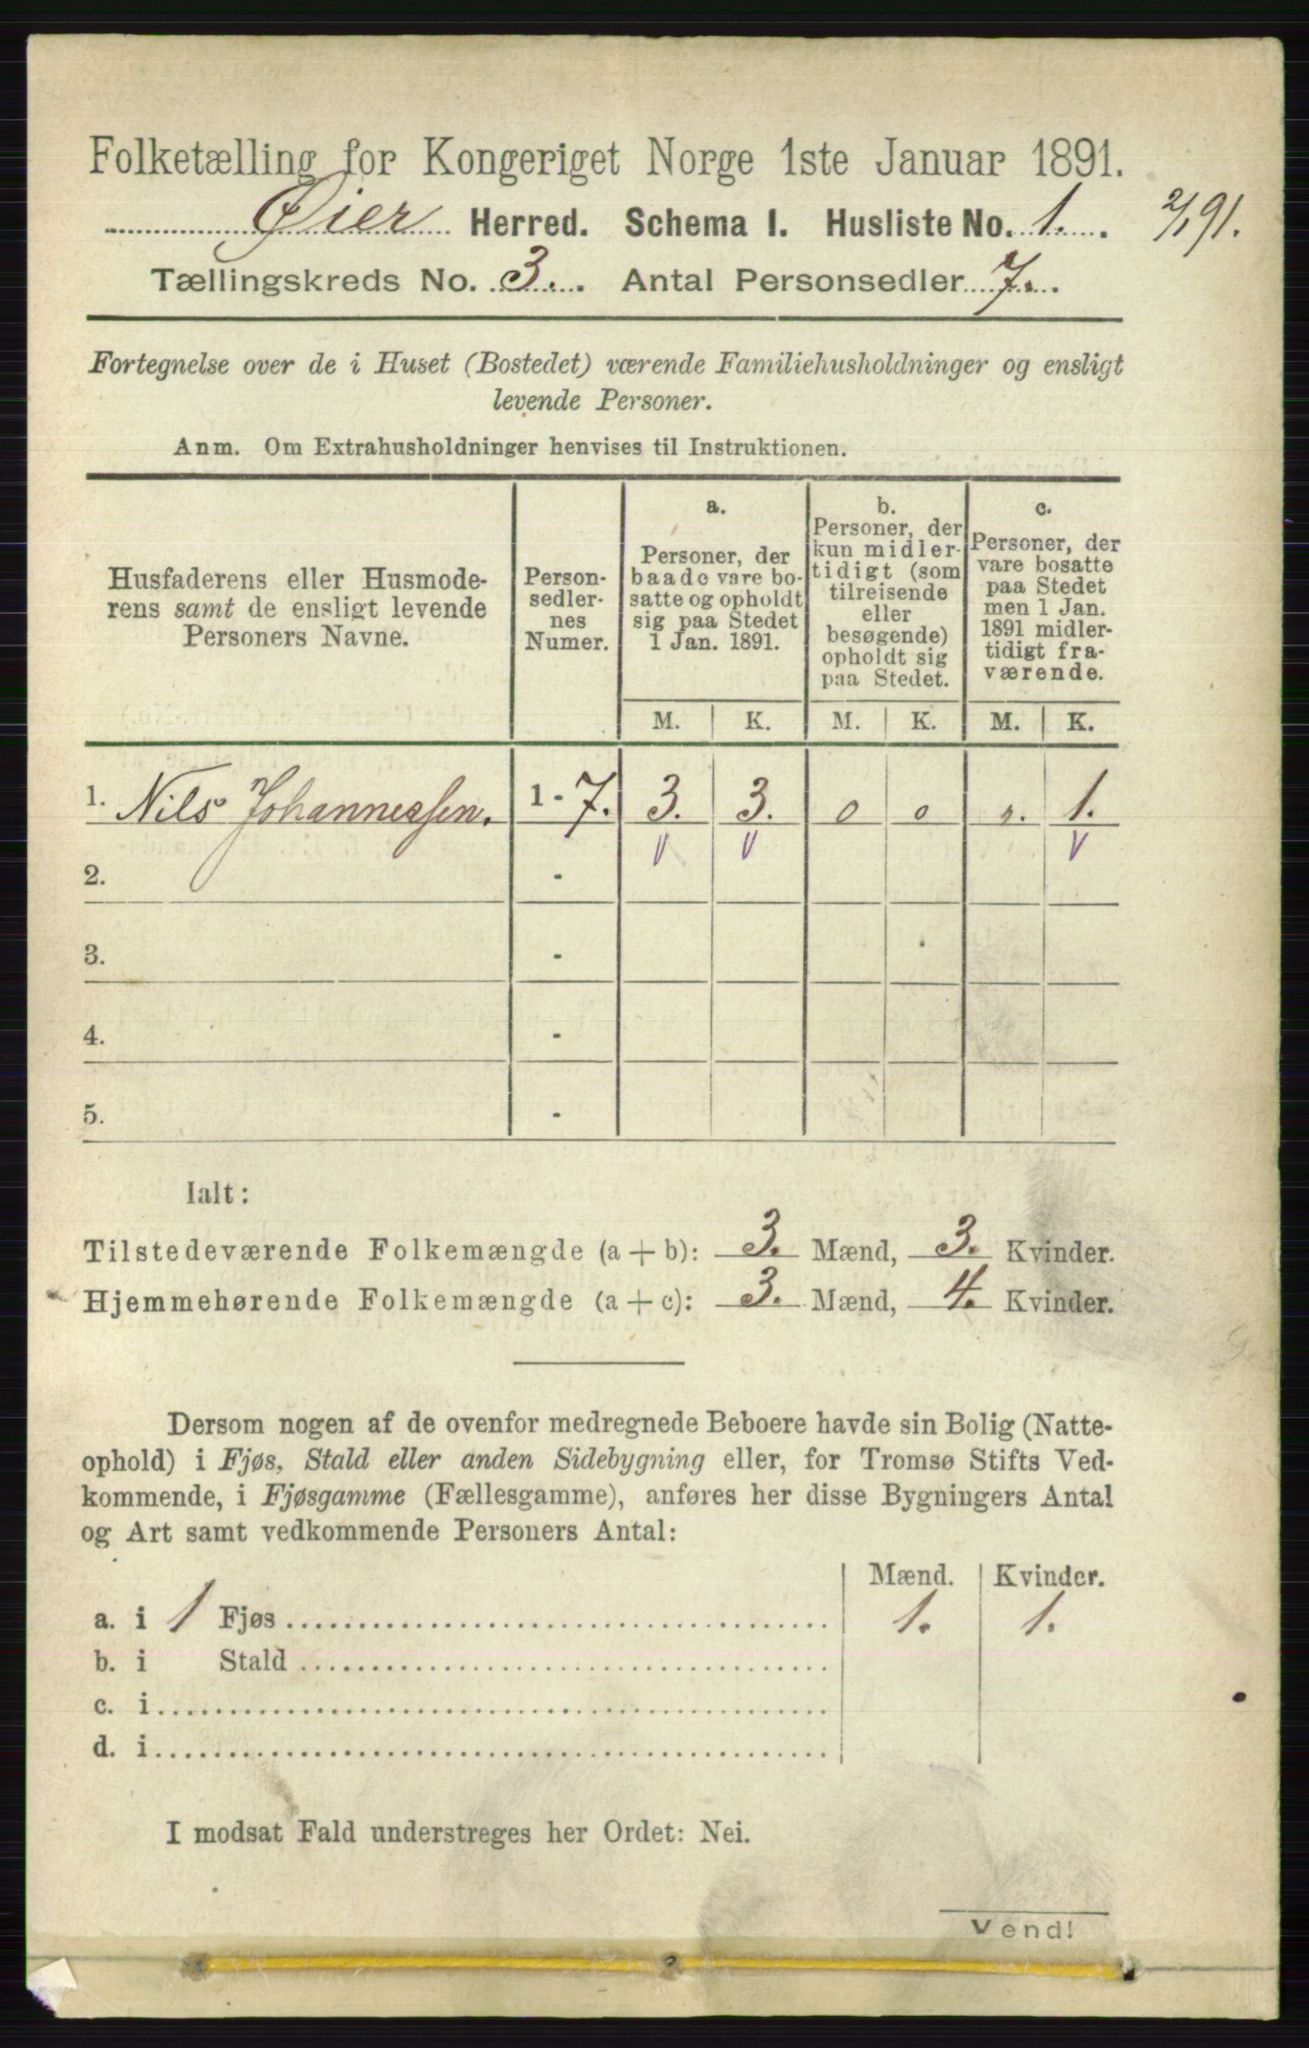 Folketælling for Kongeriget Norge 1ste Januar 1891.
Øier Herred. Schema I. Husliste No. 1. 2/1 91.
Tællingskreds No. 3. Antal Personsedler 7.
Fortegnelse over de i Huset (Bostedet) værende Familiehusholdninger og ensligt
levende Personer.
Anm. Om Extrahusholdninger henvises til Instruktionen.
Husfaderens eller Husmode-
rens samt de ensligt levende
Personers Navne.
Person-
sedler-
nes
Numer.
a.
Personer, der
baade vare bo-
satte og opholdt
sig paa Stedet
1 Jan. 1891.
b.
Personer, der
kun midler-
tidigt (som
tilreisende
eller
besøgende)
opholdt sig
paa Stedet.
c.
Personer, der
vare bosatte
paa Stedet
men 1 Jan.
1891 midler-
tidigt fra-
værende.
M. K. M. K. M. K.
1. Nils Johannessen. 1 - 7. 3. 3. 0 0 1.
2. -
3. -
4. -
5. -
Ialt:
Tilstedeværende Folkemængde (a + b): 3. Mænd, 3. Kvinder.
Hjemmehørende Folkemængde (a + c): 3. Mænd, 4. Kvinder.
Dersom nogen af de ovenfor medregnede Beboere havde sin Bolig (Natte-
ophold) i Fjøs, Stald eller anden Sidebygning eller, for Tromsø Stifts Ved-
kommende, i Fjøsgamme (Fællesgamme), anføres her disse Bygningers Antal
og Art samt vedkommende Personers Antal:
Mænd. Kvinder.
a. i 1 Fjøs 1. 1.
b. i Stald
c. i
d. i
I modsat Fald understreges her Ordet: Nei.
Vend!